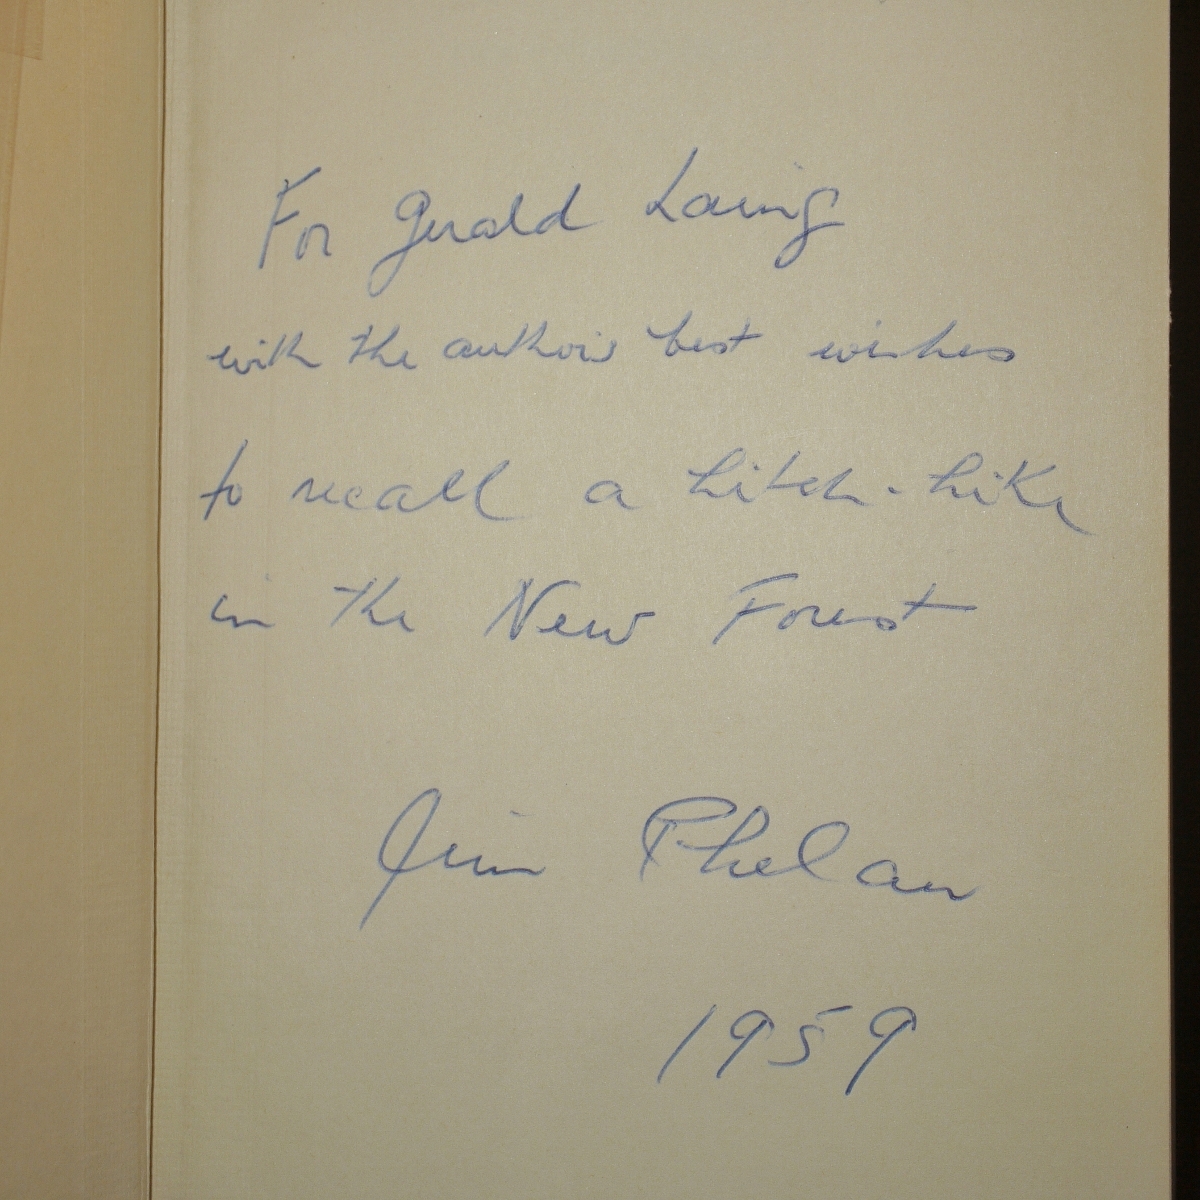 For Gerald Laing
with the author's best wishes
to recall a hitch-hike
in the New Forest
Jim Phelan
1959